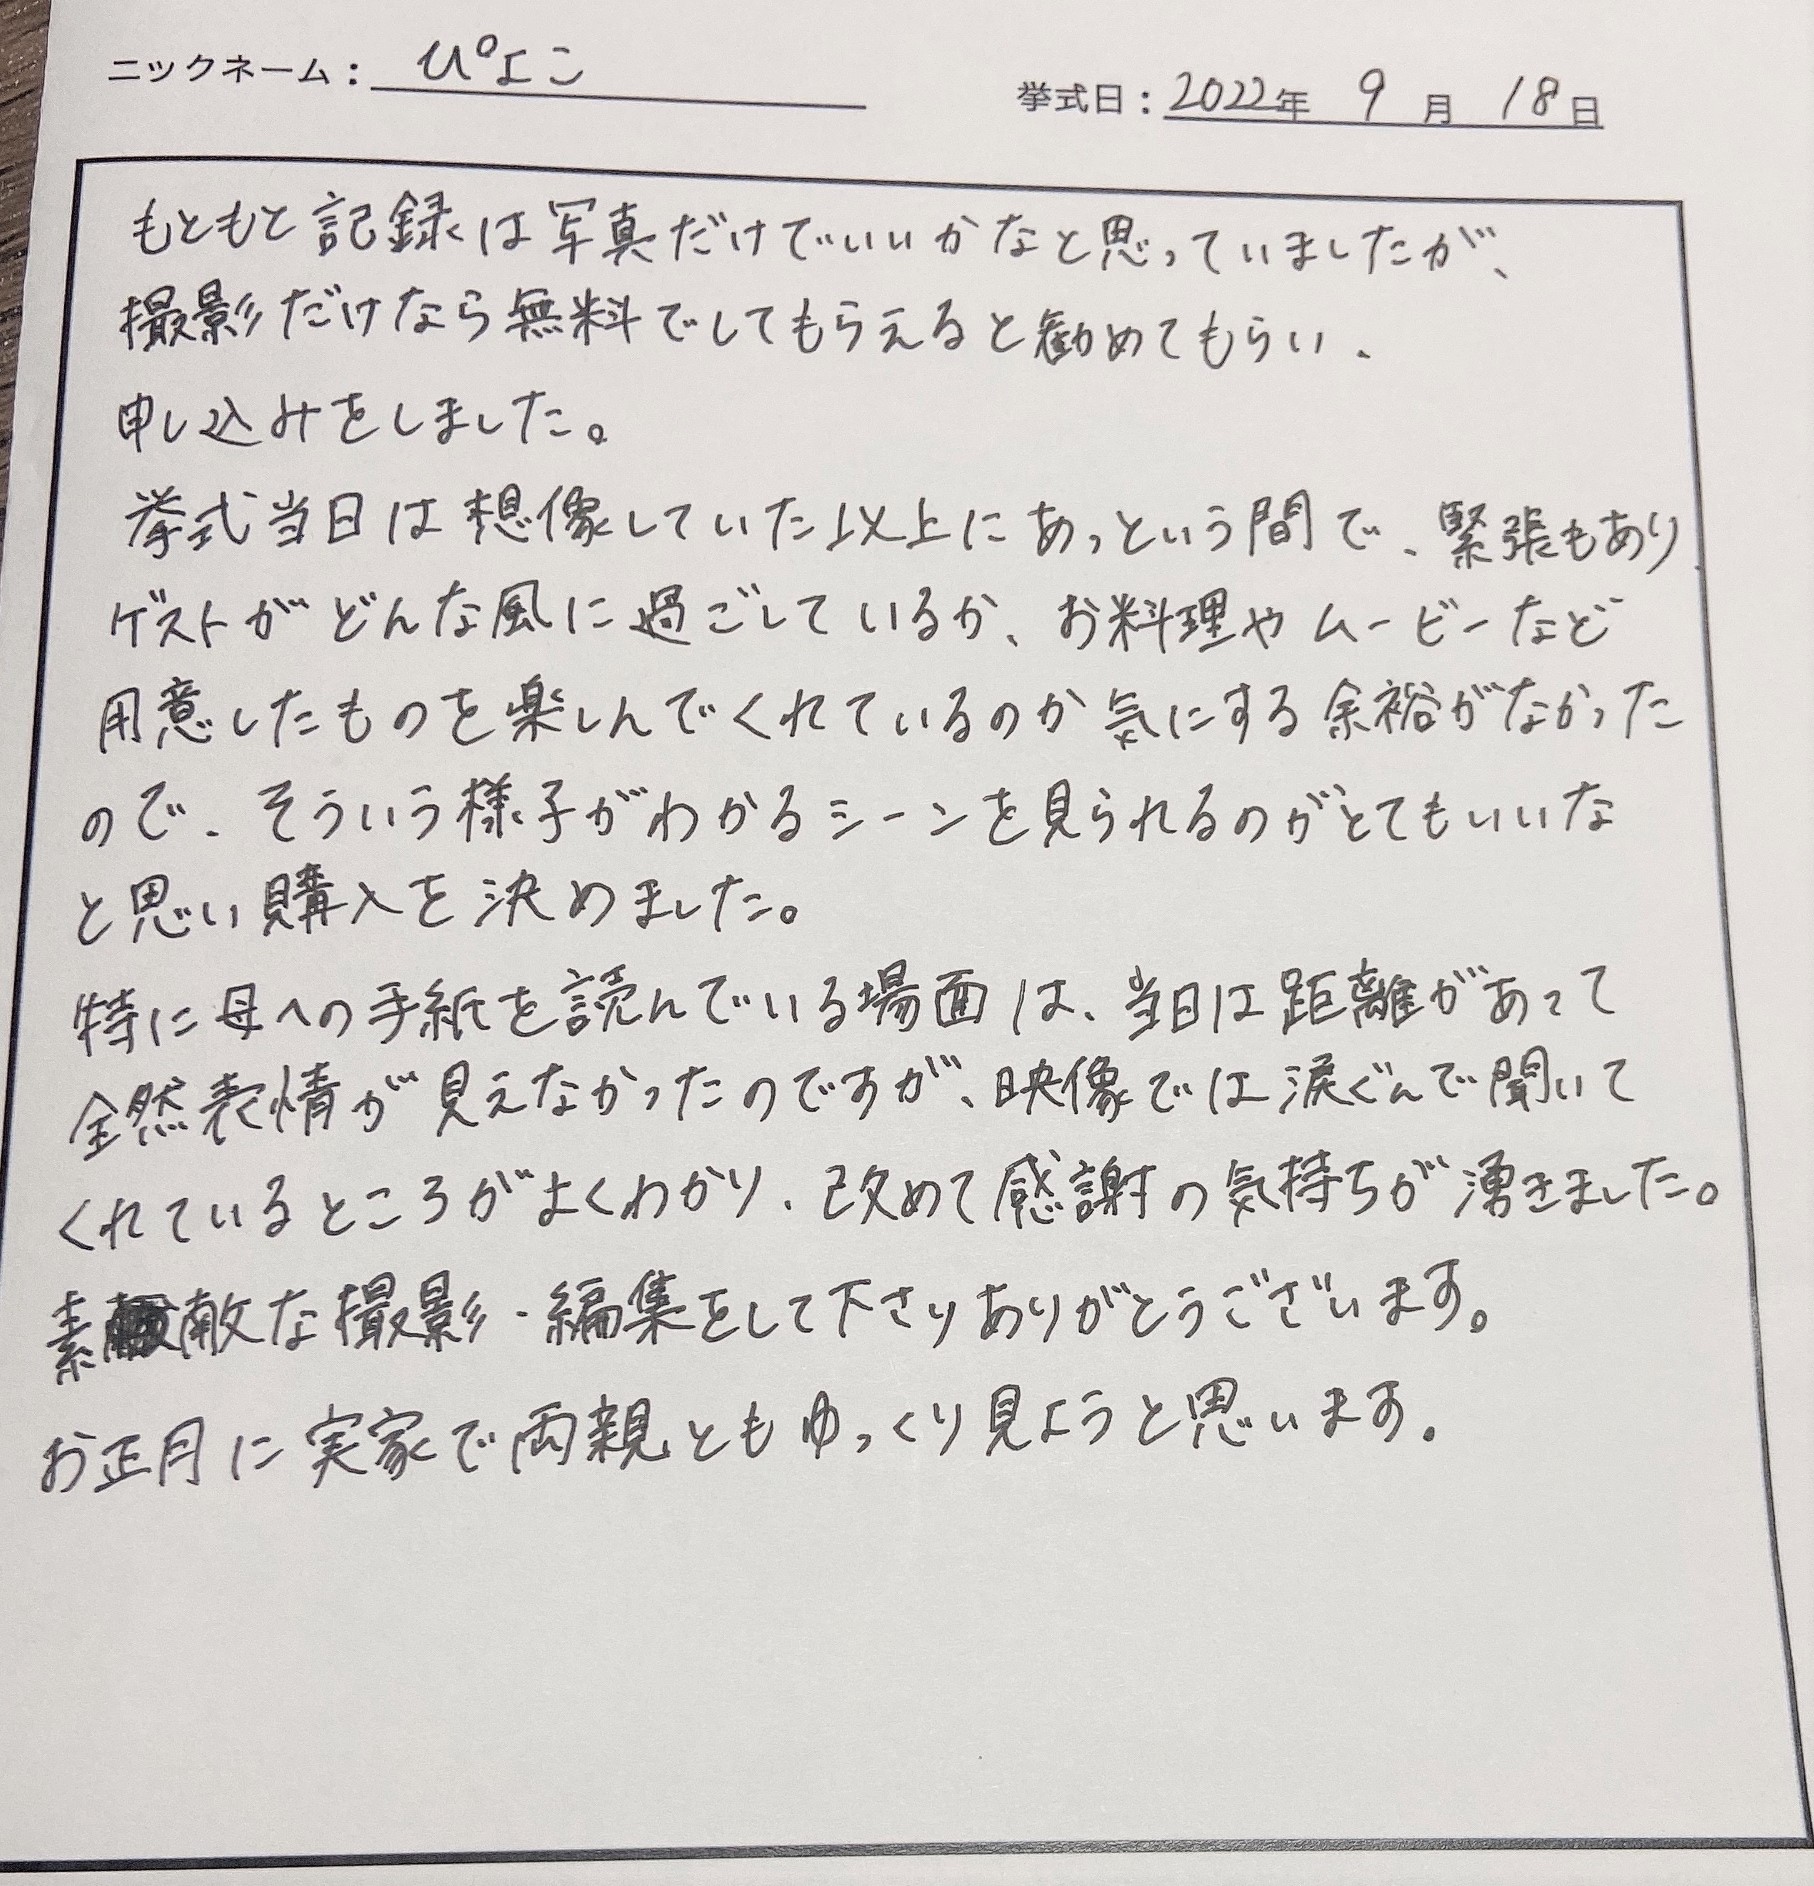 ニックネーム：ぴよこ
挙式日：2022年 9月 18日
もともと記録は写真だけでいいかなと思っていましたが、
撮影だけなら無料でしてもらえると勧めてもらい、
申し込みをしました。
挙式当日は想像していた以上にあっという間で、緊張もあり
ゲストがどんな風に過ごしているか、お料理やムービーなど
用意したものを楽しんでくれているのか気にする余裕がなかった
ので、そういう様子がわかるシーンを見られるのがとてもいいな
と思い購入を決めました。
特に母への手紙を読んでいる場面は、当日は距離があって
全然表情が見えなかったのですが、映像では涙ぐんで聞いて
くれているところがよくわかり、改めて感謝の気持ちが湧きました。
素敵な撮影・編集をして下さりありがとうございます。
お正月に実家で両親ともゆっくり見ようと思います。